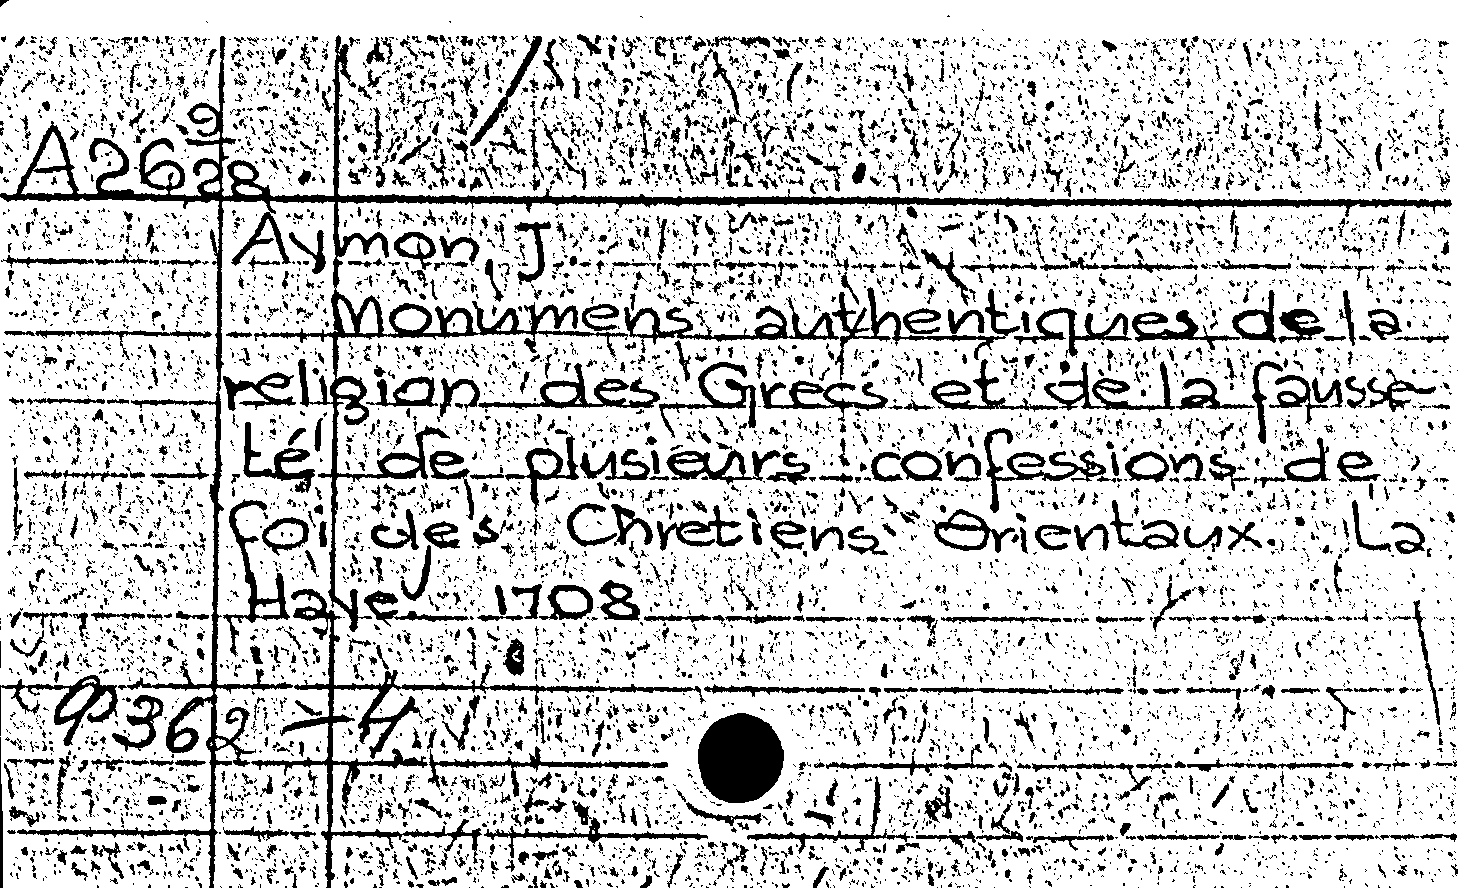 A 26 9/28
Aymon, J.
Monumens authentiques de la
religion des Grecs et de la fausse-
té de plusieurs confessions de
foi des Chretiens Orientaux. La
Haye. 1708
9362-4